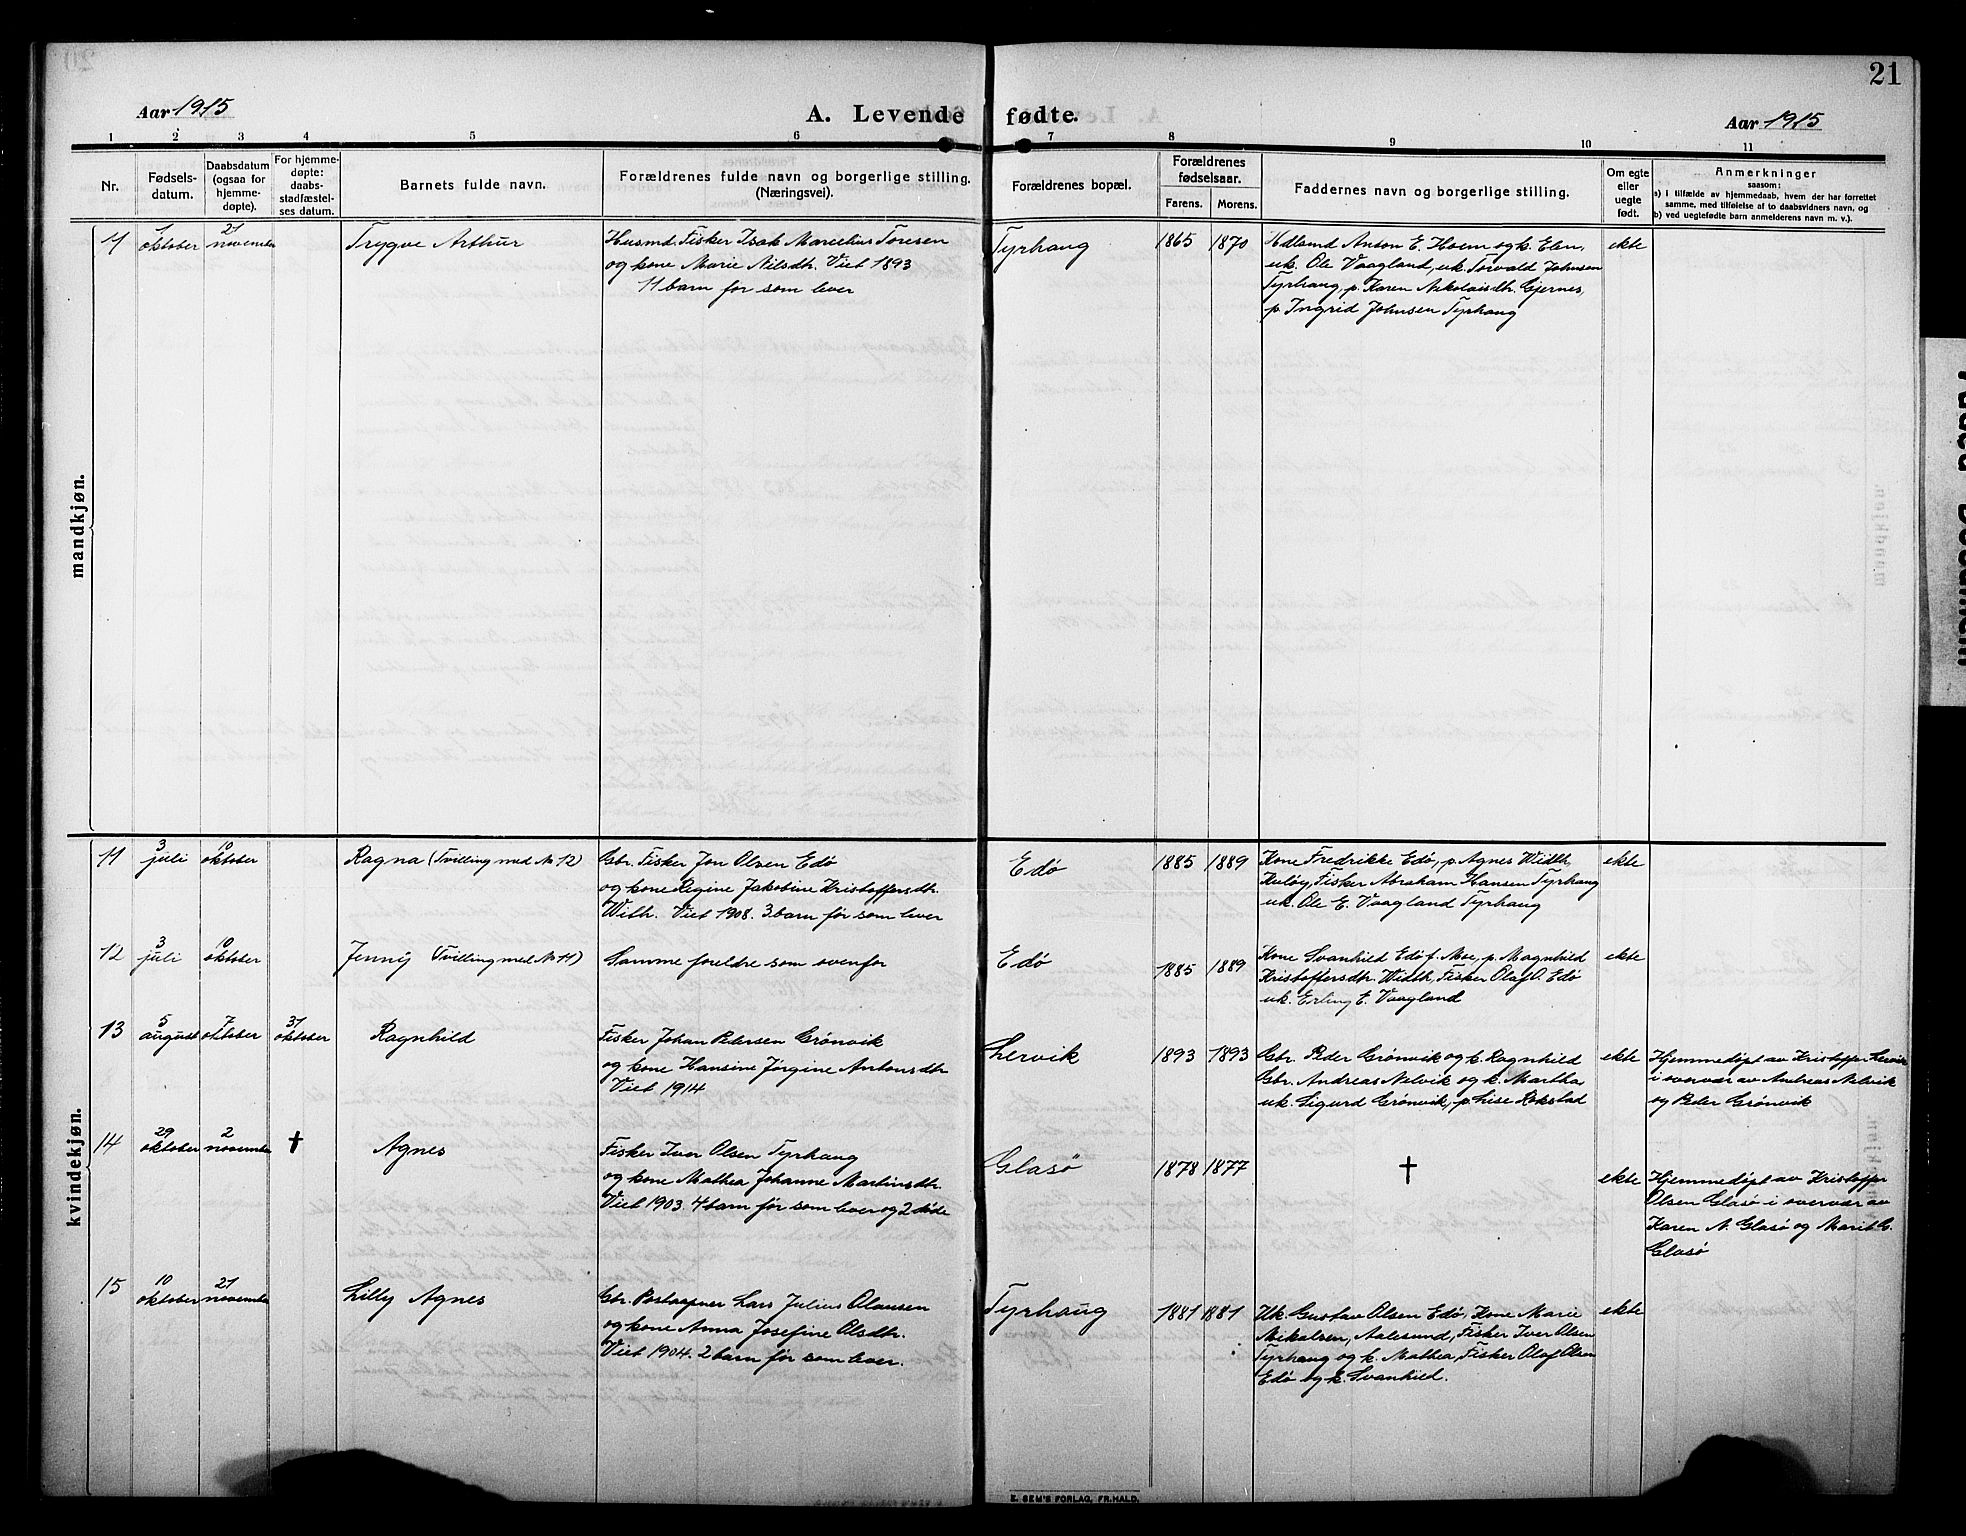 21
Aar 1915
A. Levende fødte.
Aar 1915
1 2 3 4 5 6 7 8 9 10 11
Nr.
Fødsels-
datum.
Daabsdatum
(ogsaa for
hjemme-
døpte).
For hjemme-
døpte:
daabs-
stadfæstel-
ses datum.
Barnets fulde navn.
Forældrenes fulde navn og borgerlige stilling.
(Næringsvei).
Forældrenes bopæl.
Forældrenes
fødselsaar.
Farens. Morens.
Faddernes navn og borgerlige stilling.
Om egte
eller
uegte
født.
Anmerkninger
saasom:
a) i tilfælde av hjemmedaab, hvem der har forrettet
samme, med tilføielse af to daabsvidners navn, og
b) ved uegtefødte barn anmelderens navn m. v.).
mandkjøn.
11
1
oktober
21
november
Trygve Arthur
Husmd. Fisker Isak Marcelius Toresen
og kone Marie Nilsdtr. Viet 1893
11 barn før som lever
Tyrhaug
1865 1870
Hdlsmd Anton E. Hoem og k. Elen,
uk. Ole Vaagland, uk. Torvald Johnsen
Tyrhaug, p. Karen Nikolaisdtr. Gjernes,
p. Ingrid Johnsen Tyrhaug
ekte
kvindekjøn.
11
3
juli
10
oktober
Ragna (Tvilling med № 12)
Gbr. Fisker Jon Olsen Edø
og kone Regine Jakobine Kristoffersdtr.
With. Viet 1908. 3 barn før som lever
Edø
1885 1889
Kone Fredrikke Edø, p. Agnes Width,
Kuløy, Fisker Abraham Hansen Tyrhaug
uk. Ole E. Vaagland Tyrhaug
ekte
12
3
juli
10
oktober
Jenny (Tvilling med № 11)
Samme foreldre som ovenfor
Edø
1885 1889
Kone Svanhild Edø f. Moe, p. Magnhild
Kristoffersdtr. Width, Fisker Olaf O. Edø
uk. Erling E. Vaagland
ekte
13
5
august
7
oktober
31
oktober
Ragnhild
Fisker Johan Petersen Grønvik
og kone Hansine Jørgine Antonsdtr
Viet 1914
Lervik
1893 1893
Gbr. Peder Grønvik og k. Ragnhild
Gbr. Andreas Nelvik og k. Martha
uk. Sigurd Grønvik, p. Lise Rokstad
ekte
Hjemmedøpt av Kristoffer Lervik
i overvær av Andreas Nelvik
og Peder Grønvik
14
29
oktober
2
november
†
Agnes
Fisker Iver Olsen Tyrhaug
og kone Mathea Johanne Martinsdtr.
Viet 1903. 4 barn før som lever og 2 døde
Glasø
1878 1877
†
ekte
Hjemmedøpt av Kristoffer
Olsen Glasø i overvær av
Karen N. Glasø og Marit G.
Glasø
15
10
oktober
21
november
Lilly Agnes
Gbr. Postaapner Lars Julius Olausen
og kone Anna Josefine Olsdtr.
Viet 1904. 2 barn før som lever.
Tyrhaug
1881 1881
Uk. Gustav Olsen Edø, Kone Marie
Mikalsen, Aalesund, Fisker Iver Olsen
Tyrhaug og k. Mathea, Fisker Olaf Olsen
Edø og k. Svanhild.
ekte
E. SEM'S FORLAG, FR.HALD.